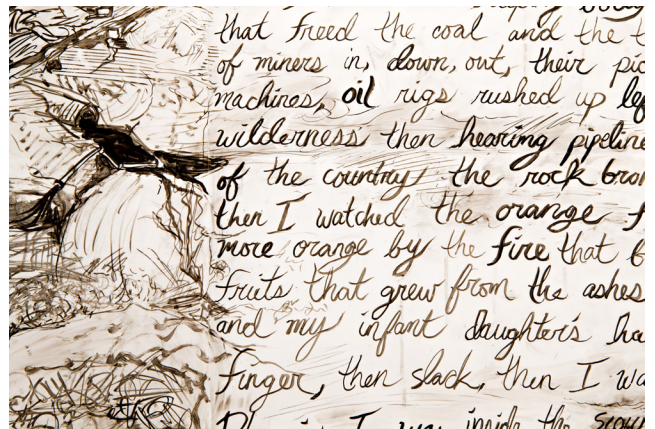 that freed the coal and the
of miners in, down, out, their
machines, oil rigs rushed up
wilderness then hearing
of the country the rock
then I watched the orange
more orange by the fire that
fruits that grew from the ashes
and my infant daughter's
finger, then slack, then I
I inside the